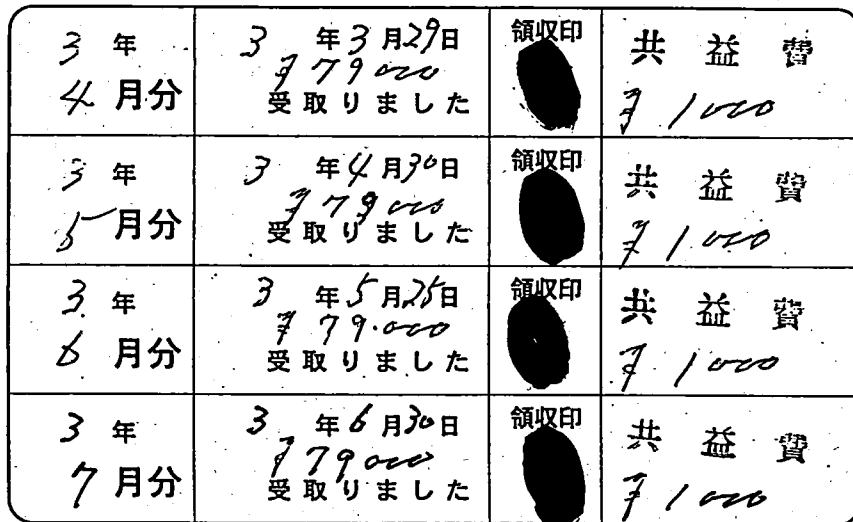 3年
4月分
3年3月29日
¥79000
受取りました
領収印
共益費
¥1000
3年
5月分
3年4月30日
¥79000
受取りました
領収印
共益費
¥1000
3年
6月分
3年5月25日
¥79.000
受取りました
領収印
共益費
¥1000
3年
7月分
3年6月30日
¥79000
受取りました
領収印
共益費
¥1000